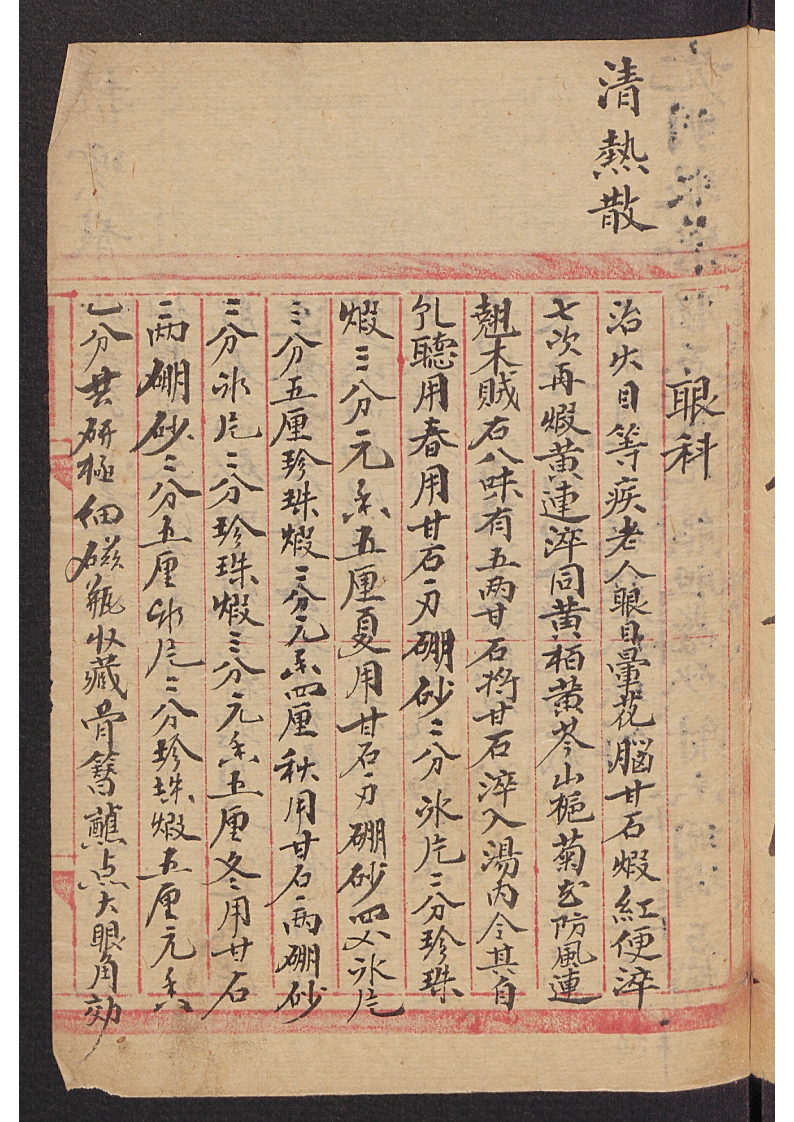 清熱散
眼科
治火目等疾老人眼目暈花腦甘石煆紅便淬
七次再煆黃連淬同黃柏黃芩山梔菊花防風連
翹木賊右八味有五兩甘石將甘石淬入湯內令其自
乳聽用春用甘石一刃硼砂三分冰片三分珍珠
煆三分元香五厘夏用甘石刃硼砂四分冰片
三分五厘珍珠煆三分元香四厘秋用甘石一兩硼砂
三分冰片三分珍珠煆三分元香五厘冬用甘石
一兩硼砂三分五厘冰片三分珍珠煆五厘元香
七分共研極細磁瓶收藏骨簪蘸点大眼角効